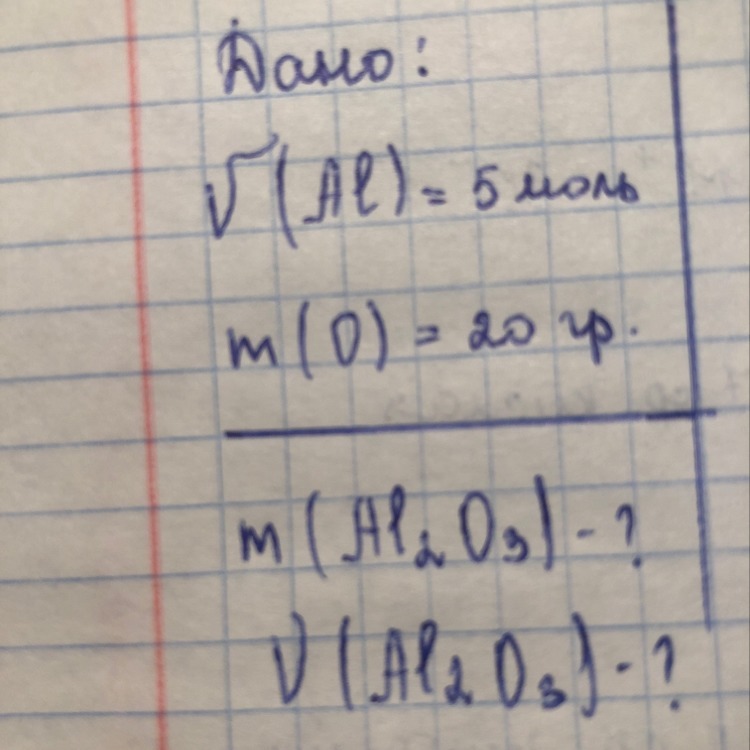 Дано:
√(Al) = 5 моль
m(O) = 20 гр.
m(Al₂O₃) - ?
V(Al₂O₃) - ?